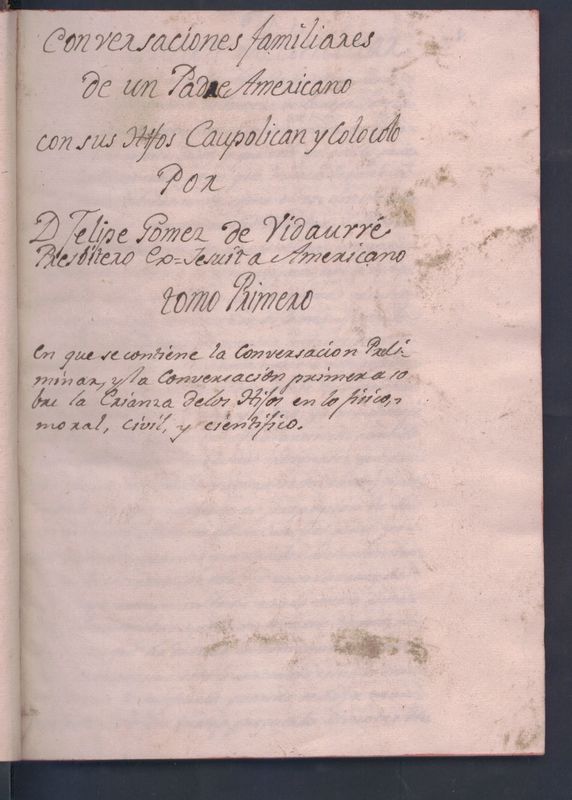 Conversaciones familiares
de un Padre Americano
con sus Hijos Caupolican y Colocolo
Por
D. Felipe Gomez de Vidaurré
Presbitero Ex=Jesuita Americano
tomo Primero
En que se contiene la Conversacion Preli-
minar, y la Conversación primera so
bre la Crianza de los Hijos en lo fisico,
moral, civil, y cientifico.